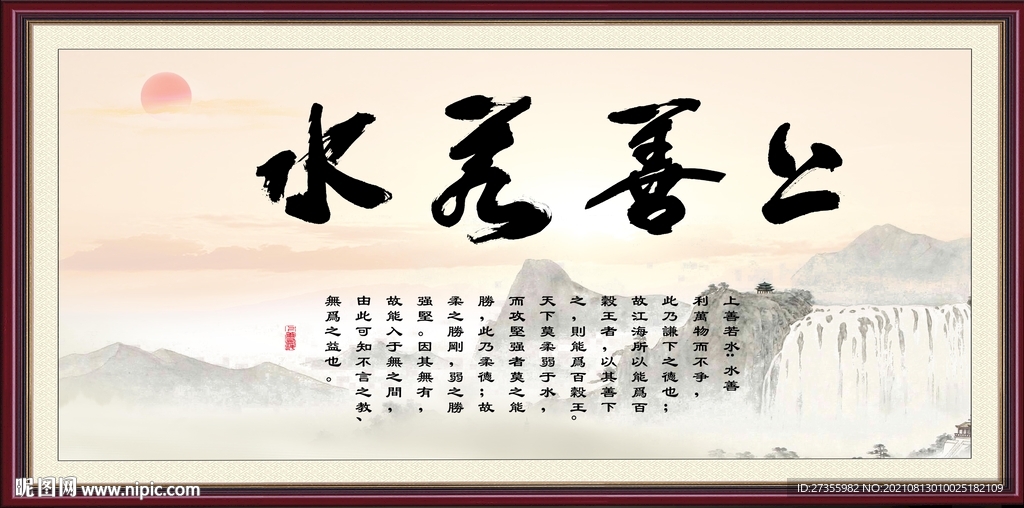 上善若水
上善若水：水善
利萬物而不爭，
此乃謙下之德也；
故江海所以能爲百
穀王者，以其善下
之，則能爲百穀王。
天下莫柔弱于水，
而攻堅强者莫之能
勝，此乃柔德；故
柔之勝剛，弱之勝
强堅。因其無有，
故能入于無之間，
由此可知不言之教、
無爲之益也。
昵图网 www.nipic.com
ID:27355982 NO:20210813010025182109